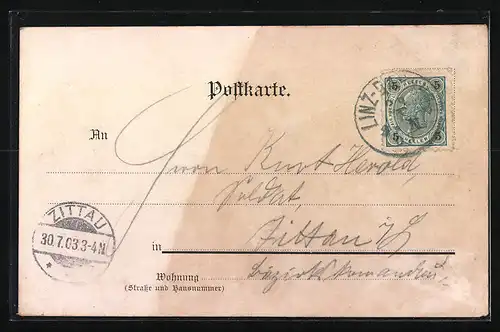 Postkarte.
LINZ-
5 5
5 5
An Herrn Kurt Herold,
Soldat,
ZITTAU
30.7.03 3-4N
*
in Zittau
Bezirkskommando
Wohnung
(Straße und Hausnummer)